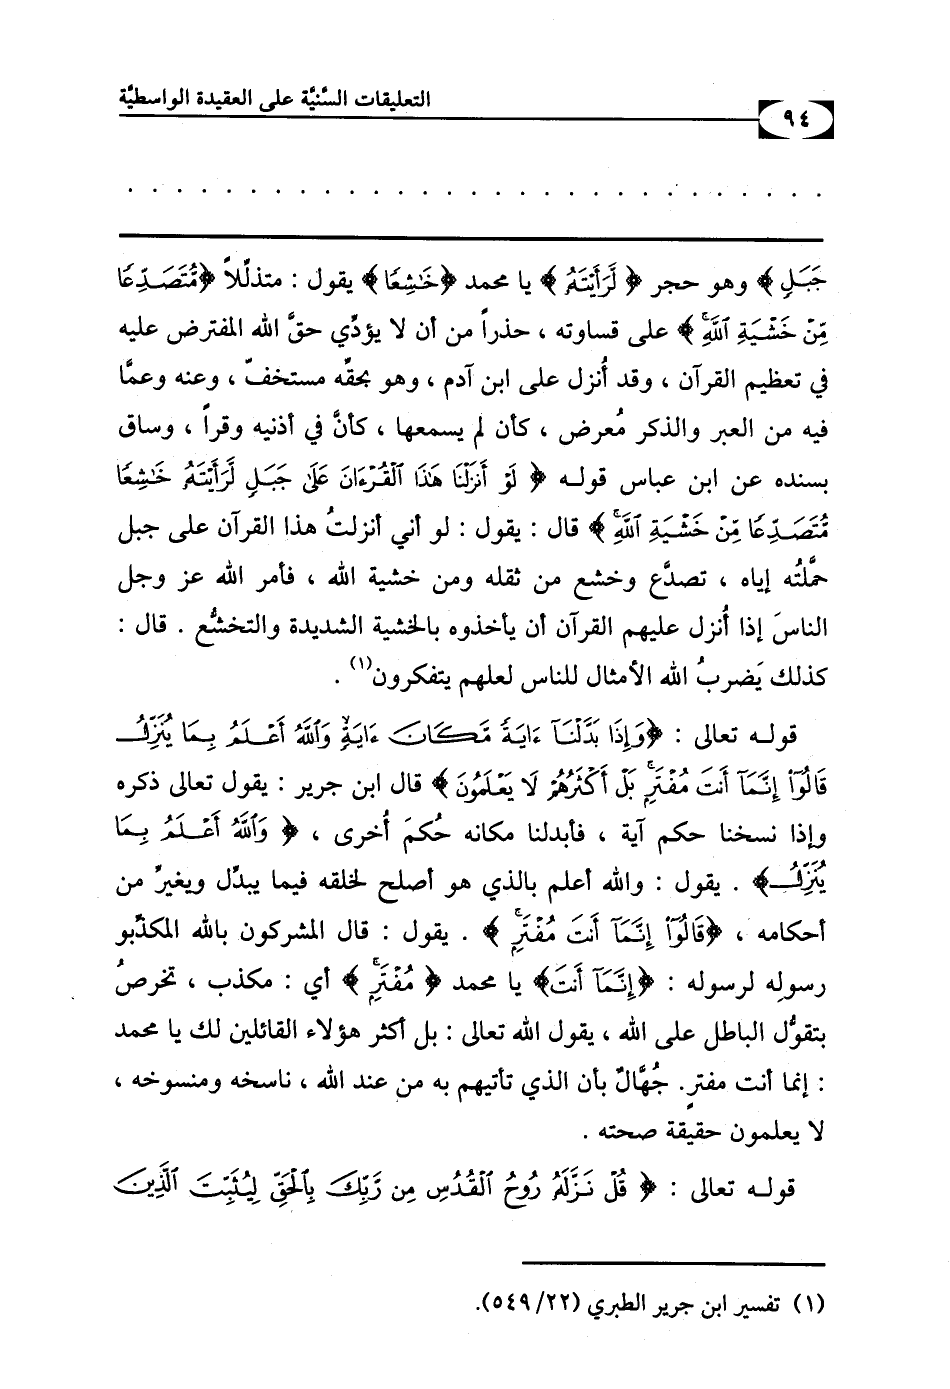 التعليقات السَّنيَّة على العقيدة الواسطيَّة
٩٤
جَبَلٍ﴾ وهو حجر ﴿لَّرَأَيْتَهُۥ﴾ يا محمد ﴿خَٰشِعًا﴾ يقول : متذلِّلاً ﴿مُّتَصَدِّعًا
مِّنْ خَشْيَةِ ٱللَّهِۚ﴾ على قساوته ، حذراً من أن لا يؤدِّي حقَّ الله المفترض عليه
في تعظيم القرآن ، وقد أُنزل على ابن آدم ، وهو بحقِّه مستخفّ ، وعنه وعمَّا
فيه من العبر والذكر مُعرض ، كأن لم يسمعها ، كأنَّ في أذنيه وقراً ، وساق
بسنده عن ابن عباس قوله ﴿لَوْ أَنزَلْنَا هَٰذَا ٱلْقُرْءَانَ عَلَىٰ جَبَلٍ لَّرَأَيْتَهُۥ خَٰشِعًا
مُّتَصَدِّعًا مِّنْ خَشْيَةِ ٱللَّهِۚ﴾ قال : يقول : لو أني أنزلتُ هذا القرآن على جبل
حمَّلتُه إياه ، تصدَّع وخشع من ثقله ومن خشية الله ، فأمر الله عز وجل
الناسَ إذا أُنزل عليهم القرآن أن يأخذوه بالخشية الشديدة والتخشُّع . قال :
كذلك يَضربُ الله الأمثال للناس لعلهم يتفكرون(١) .
قوله تعالى : ﴿وَإِذَا بَدَّلْنَآ ءَايَةً مَّكَانَ ءَايَةٍۙ وَٱللَّهُ أَعْلَمُ بِمَا يُنَزِّلُ
قَالُوٓا۟ إِنَّمَآ أَنتَ مُفْتَرٍۭۚ بَلْ أَكْثَرُهُمْ لَا يَعْلَمُونَ﴾ قال ابن جرير : يقول تعالى ذكره
وإذا نسخنا حكم آية ، فأبدلنا مكانه حُكمَ أُخرى ، ﴿وَٱللَّهُ أَعْلَمُ بِمَا
يُنَزِّلُ﴾ . يقول : والله أعلم بالذي هو أصلح لخلقه فيما يبدِّل ويغيرِّ من
أحكامه ، ﴿قَالُوٓا۟ إِنَّمَآ أَنتَ مُفْتَرٍۭۚ﴾ . يقول : قال المشركون بالله المكذِّبو
رسوله لرسوله : ﴿إِنَّمَآ أَنتَ﴾ يا محمد ﴿مُفْتَرٍۭۚ﴾ أي : مكذب ، تخرصُ
بتقوُّل الباطل على الله ، يقول الله تعالى : بل أكثر هؤلاء القائلين لك يا محمد
: إنما أنت مفترٍ. جُهَّالٌ بأن الذي تأتيهم به من عند الله ، ناسخه ومنسوخه ،
لا يعلمون حقيقة صحته .
قوله تعالى : ﴿قُلْ نَزَّلَهُۥ رُوحُ ٱلْقُدُسِ مِن رَّبِّكَ بِٱلْحَقِّ لِيُثَبِّتَ ٱلَّذِينَ
(١) تفسير ابن جرير الطبري (٥٤٩/٢٢).